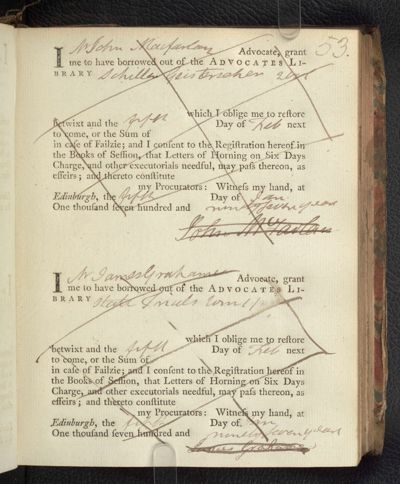 53.
I Mr John Macfarlan Advocate, grant
me to have borrowed out of the ADVOCATES LI-
BRARY Schiller Geisterseher
which I oblige me to reſtore
betwixt and the fifth Day of Feb next
to come, or the Sum of
in caſe of Failzie; and I conſent to the Regiſtration hereof in
the Books of Seſſion, that Letters of Horning on Six Days
Charge, and other executorials needful, may paſs thereon, as
effeirs; and thereto conſtitute
my Procurators: Witneſs my hand, at
Edinburgh, the fifth Day of Jan
One thouſand ſeven hundred and ninety seven years
John McFarlan
I Mr James Grahame Advocate, grant
me to have borrowed out of the ADVOCATES LI-
BRARY State Trials
which I oblige me to reſtore
betwixt and the fifth Day of Feb next
to come, or the Sum of
in caſe of Failzie; and I conſent to the Regiſtration hereof in
the Books of Seſſion, that Letters of Horning on Six Days
Charge, and other executorials needful, may paſs thereon, as
effeirs; and thereto conſtitute
my Procurators: Witneſs my hand, at
Edinburgh, the fifth Day of Jan
One thouſand ſeven hundred and ninety seven years
James Grahame